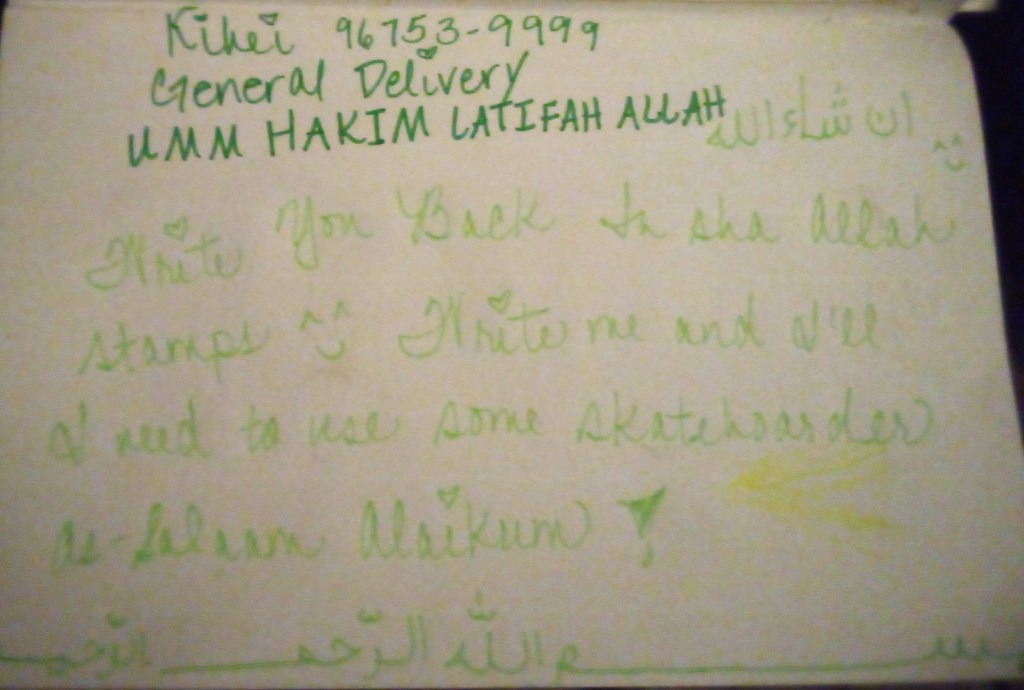 Kihei 96753-9999
General Delivery
UMM HAKIM LATIFAH ALLAH
ان شاء الله
Write You Back In sha Allah
stamps Write me and I'll
I need to use some skateboarder
As-Salaam Alaikum!
بســـم اللّه الرّحمـــ الرّحيـ